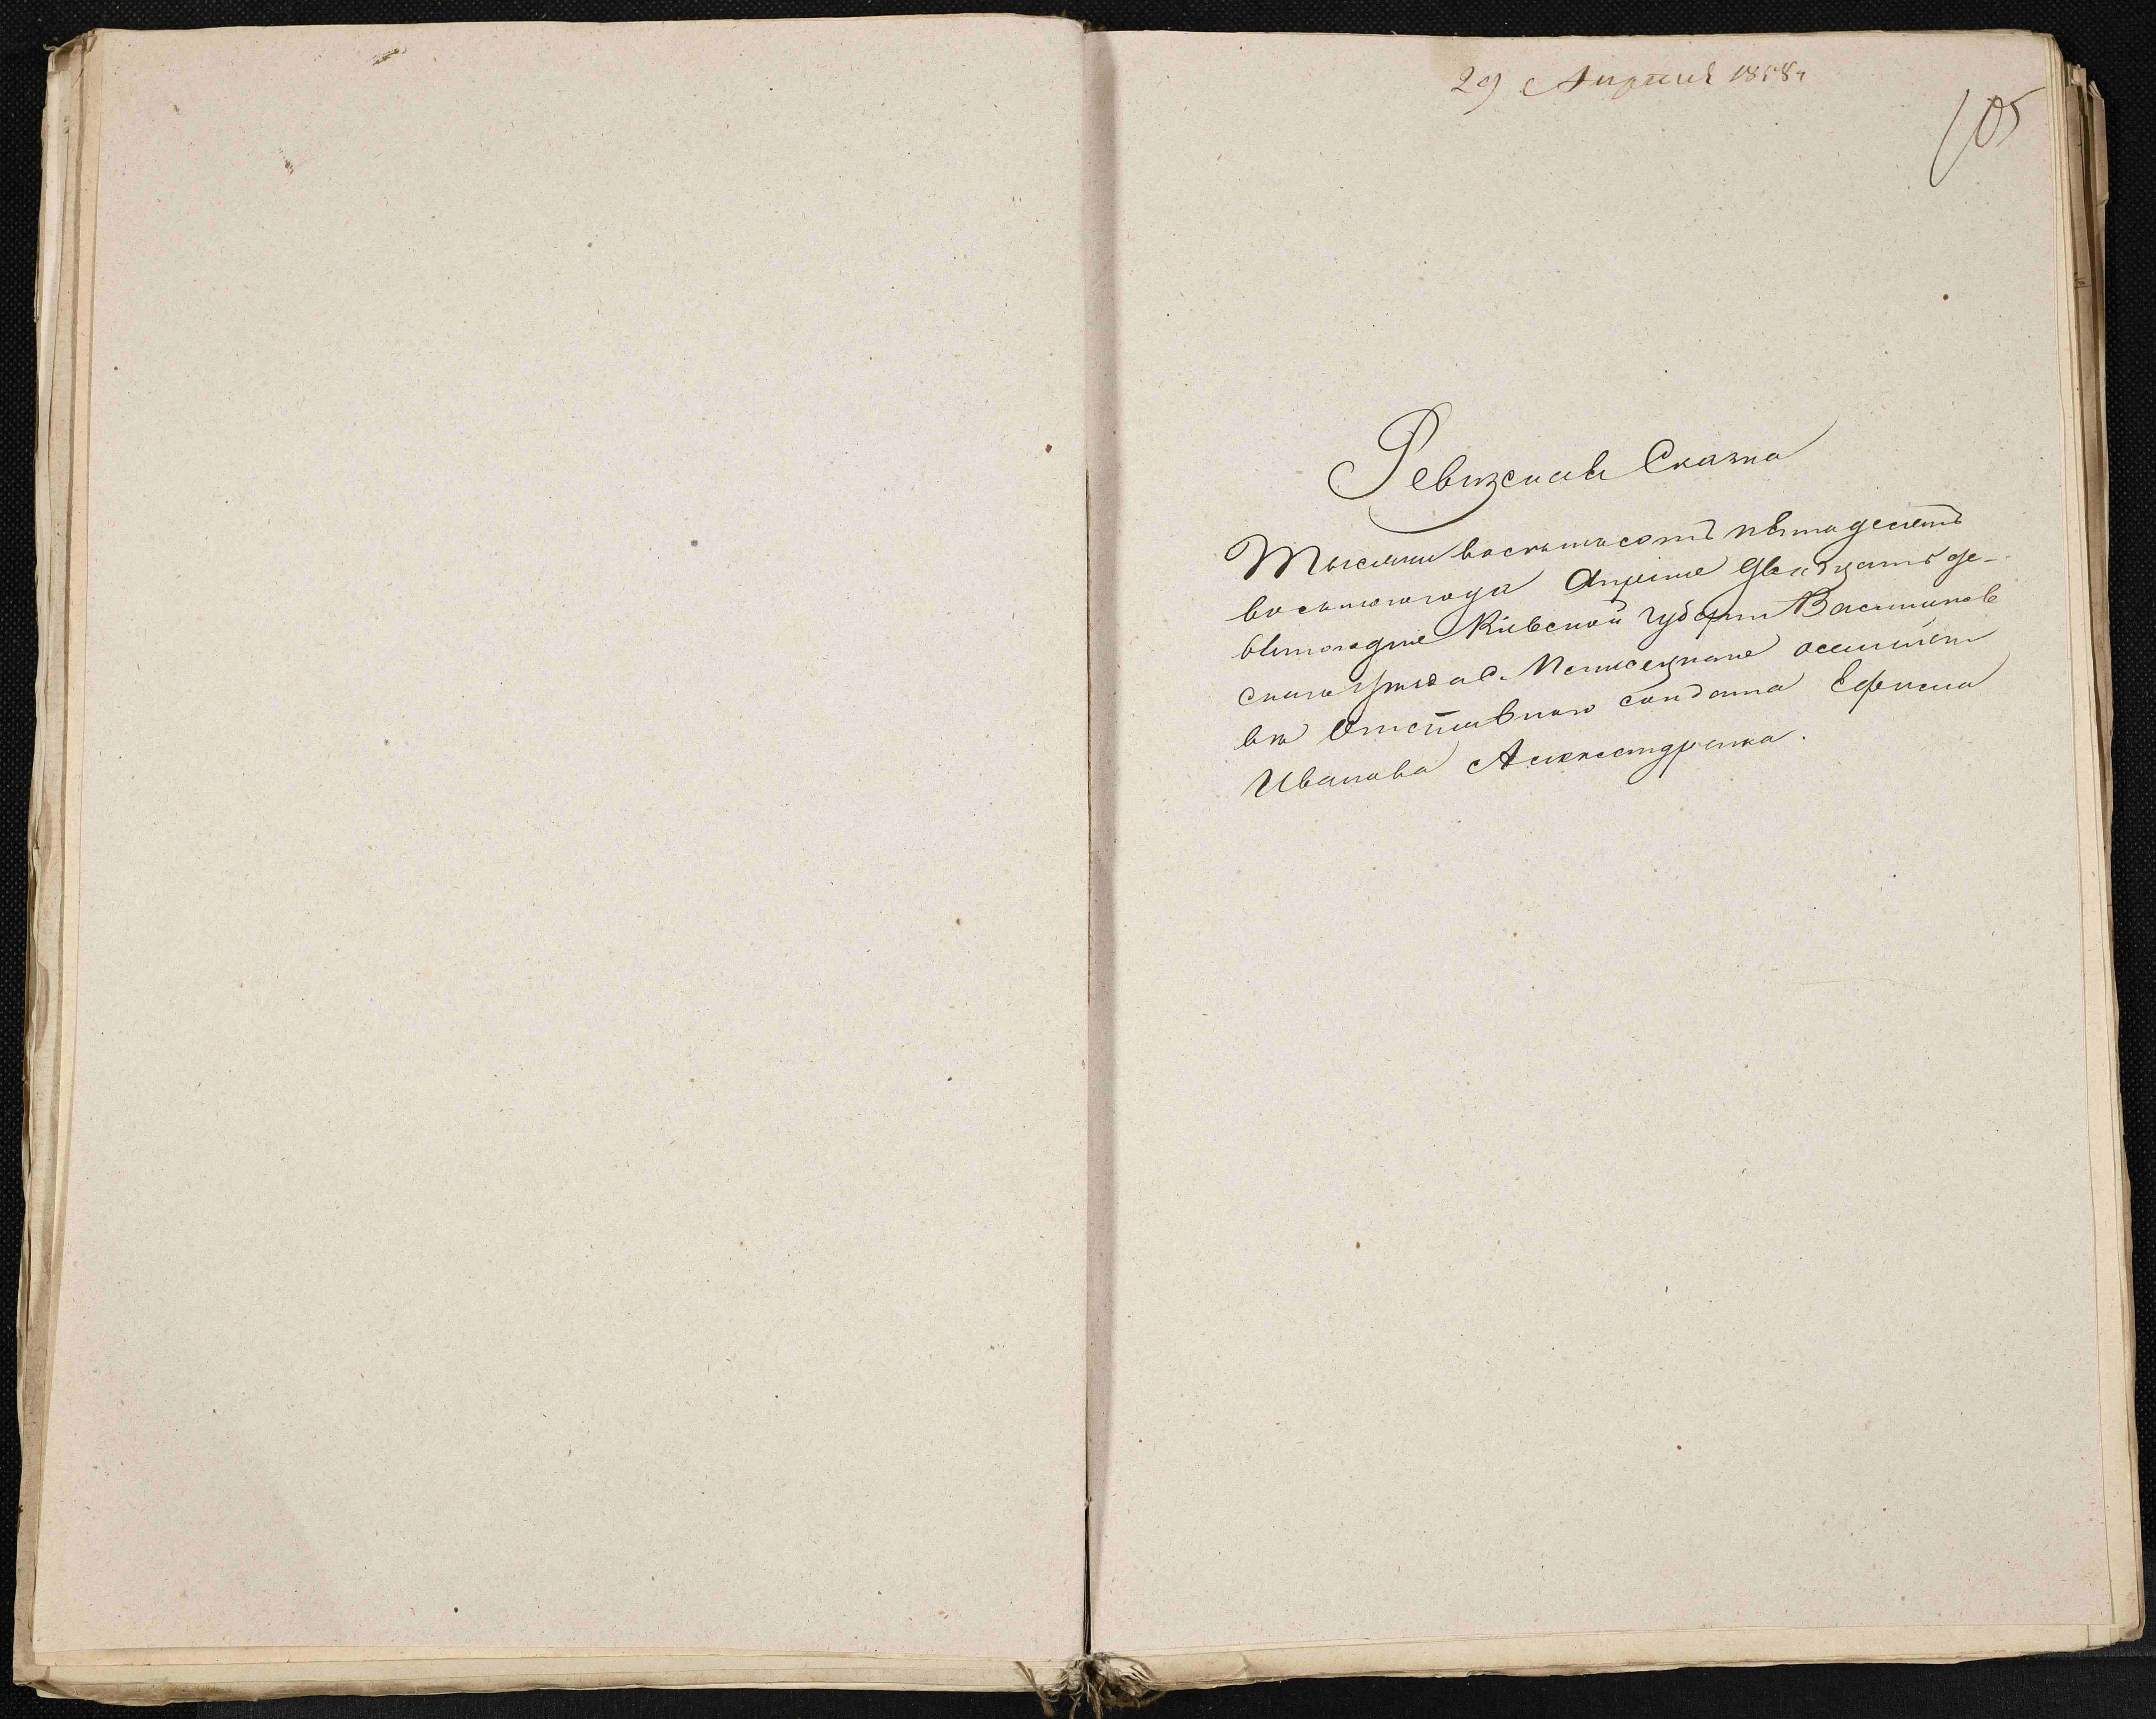 29 Апреля 1858 г
105
Ревизская Сказка
Тысяча восемьсотъ пятьдесятъ
восьмого года Апреля двадцать де-
вятого дня Киевской губерни Васильков
ского уезда с. осемшем
ся Отставного солдата Ефима
Иванова Александренка.